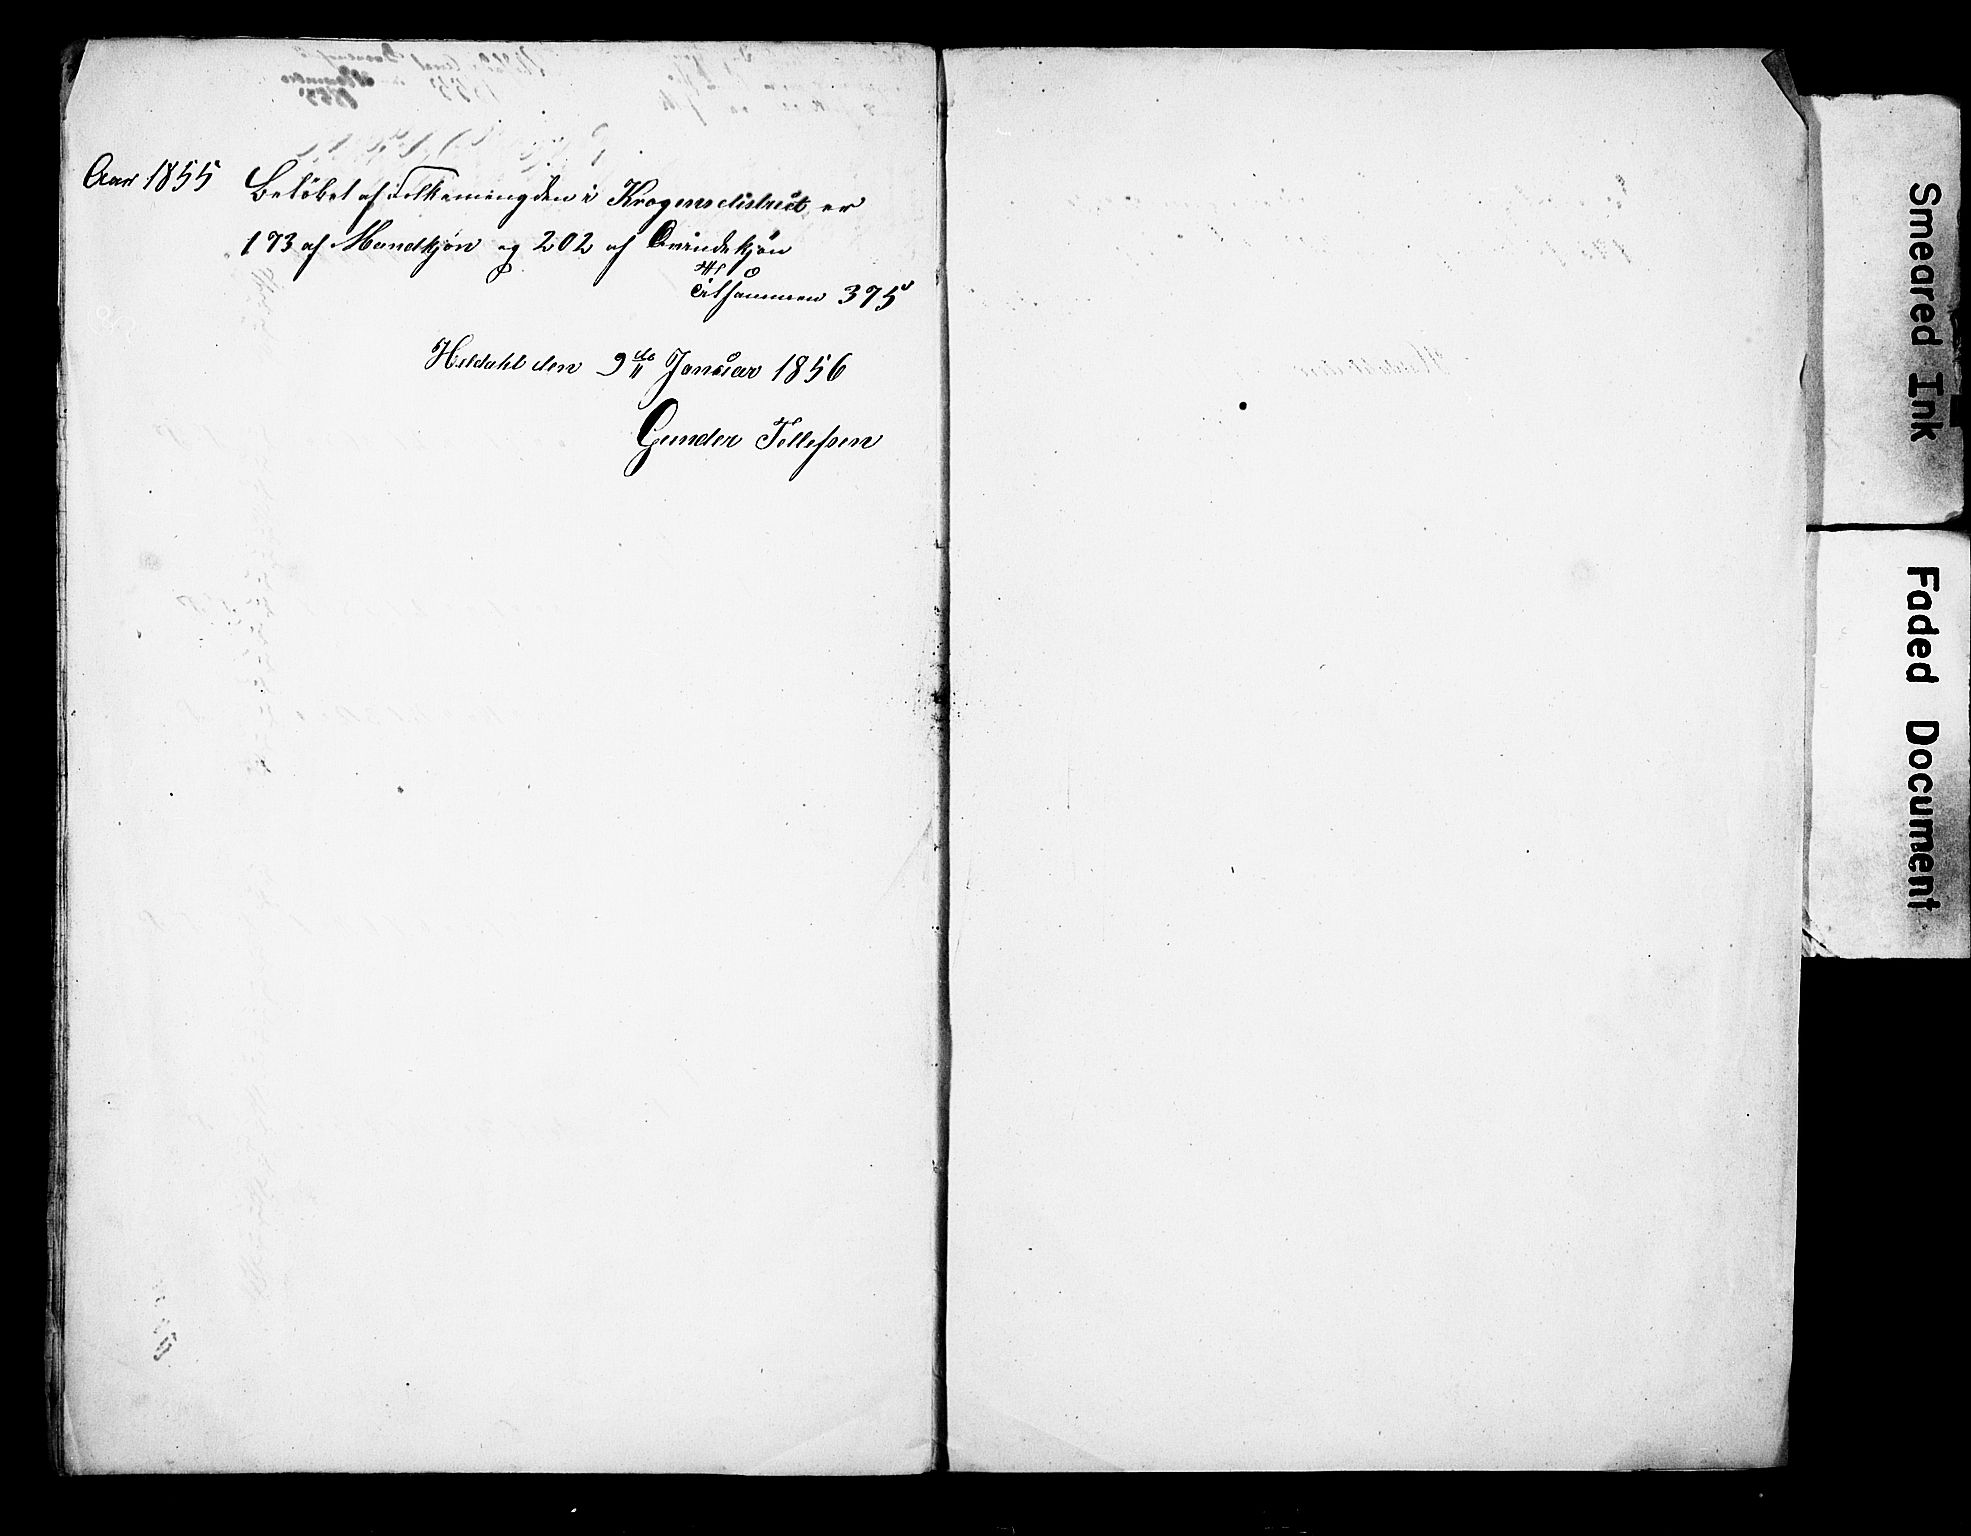 Aar 1855 Beløbet af Folkemengden i Krogens district er
173 af Mandkjøn og 202 af Qvindekjøn
Tilsammen 375
Heldahl den 9de Januar 1856
Gunder Tellefsen
Smeared Ink
Faded Document